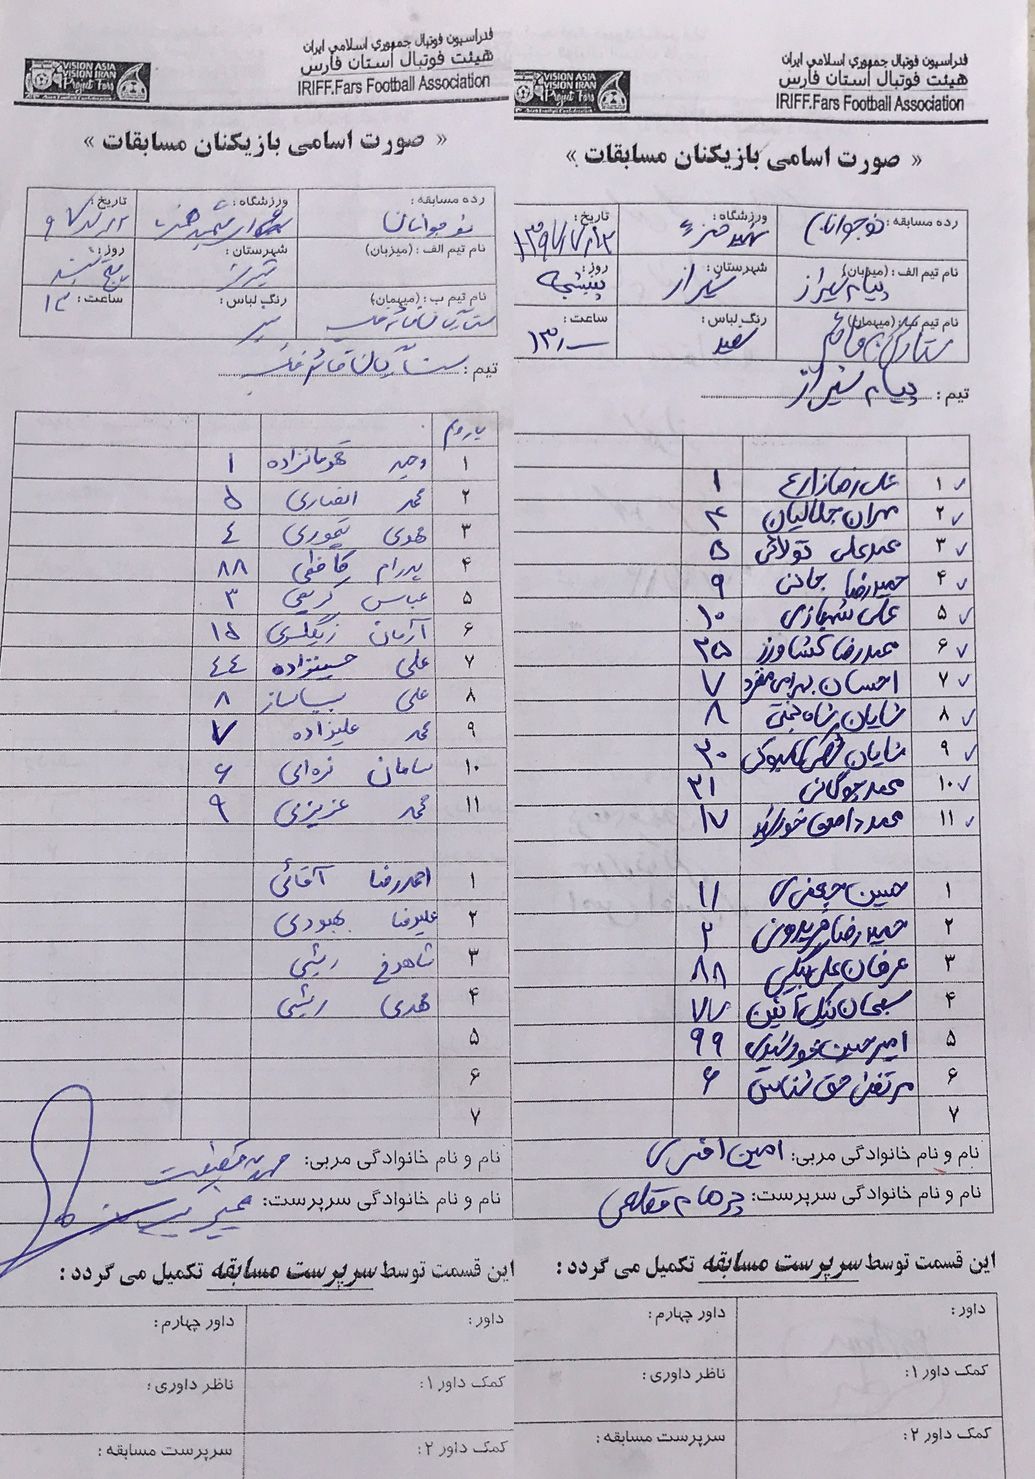 فدراسیون فوتبال جمهوری اسلامی ایران
هیئت فوتبال استان فارس
IRIFF.Fars Football Association
VISION ASIA
VISION IRAN
Project Fars
« صورت اسامی بازیکنان مسابقات »
رده مسابقه : نوجوانان
ورزشگاه :
تاریخ :
نام تیم الف : (میزبان)
شهرستان : شیراز
روز : پنج شنبه
نام تیم ب : (میهمان)
رنگ لباس : سبز
ساعت : ۱۳
تیم :
۱ وحید قهرمانزاده ۱
۲ محمد انصاری ۵
۳ مهدی تیموری ۴
۴ پدرام کاظمی ۸۸
۵ عباس کریمی ۳
۶ آرمان زنگلسری ۱۵
۷ علی حسینزاده ۴۴
۸ علی سیاساز ۸
۹ محمد علیزاده ۷
۱۰ سامان ۶
۱۱ محمد عزیزی ۹
۱ احمدرضا آقائی
۲ علیرضا بهبودی
۳ شاهرخ ریشی
۴ مهدی ریشی
۵
۶
۷
نام و نام خانوادگی مربی:
نام و نام خانوادگی سرپرست:
این قسمت توسط سرپرست مسابقه تکمیل می گردد :
داور :
داور چهارم :
کمک داور ۱ :
ناظر داوری :
کمک داور ۲ :
سرپرست مسابقه :
فدراسیون فوتبال جمهوری اسلامی ایران
هیئت فوتبال استان فارس
IRIFF.Fars Football Association
VISION ASIA
VISION IRAN
Project Fars
« صورت اسامی بازیکنان مسابقات »
رده مسابقه : نوجوانان
ورزشگاه :
تاریخ :
نام تیم الف : (میزبان) پیام شیراز
شهرستان : شیراز
روز : پنجشنبه
نام تیم ب : (میهمان)
رنگ لباس : سفید
ساعت : ۱۳:۰۰
تیم : پیام شیراز
۱ علی رضا زارع ۱
۲ مهران جلالیان ۴
۳ محمدعلی تولائی ۵
۴ حمیدرضا ۹
۵ علی شهبازی ۱۰
۶ محمدرضا کشاورز ۳۵
۷ احسان بهرامی مفرد ۷
۸ شایان ۸
۹ شایان ۳۰
۱۰ محمد چوگانی ۲۱
۱۱ محمد رامین ۱۷
۱ حسین جعفری ۱۱
۲ حمیدرضا فریدونی ۲
۳ عرفان علی بیگی ۸۸
۴ سبحان نیک آئین ۷۷
۵ امیرحسین ۹۹
۶ مرتضی حق شناس ۶
۷
نام و نام خانوادگی مربی:
نام و نام خانوادگی سرپرست:
این قسمت توسط سرپرست مسابقه تکمیل می گردد :
داور :
داور چهارم :
کمک داور ۱ :
ناظر داوری :
کمک داور ۲ :
سرپرست مسابقه :